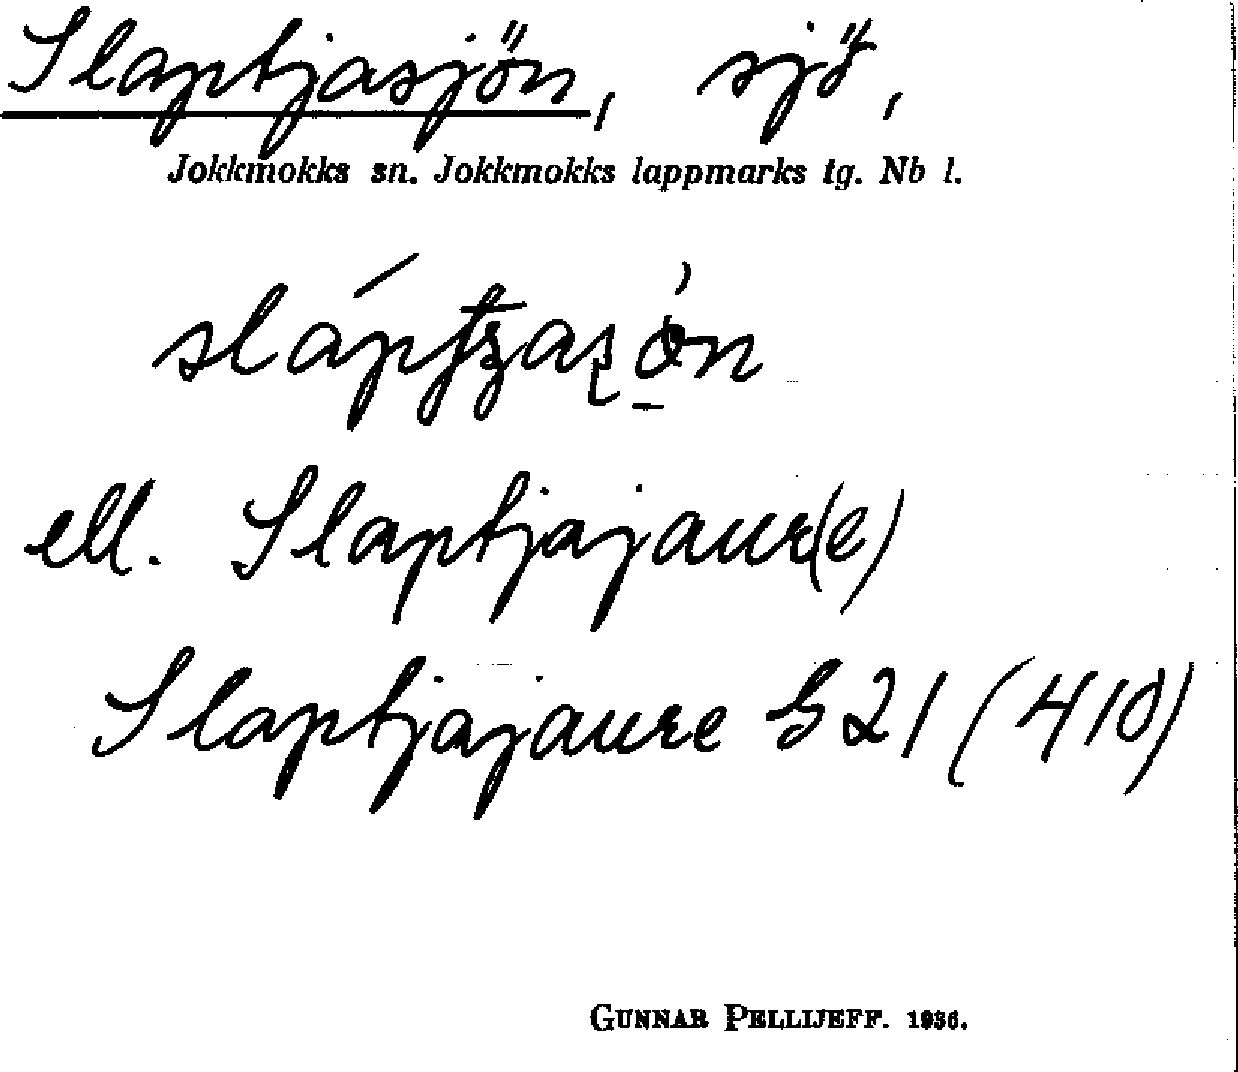 Slaptjasjön, sjö,
Jokkmokks sn. Jokkmokks lappmarks tg. Nb l.
ell. Slaptjajaur(e)
Slaptjajaure G21 (410)
GUNNAR PELLIJEFF. 1936.